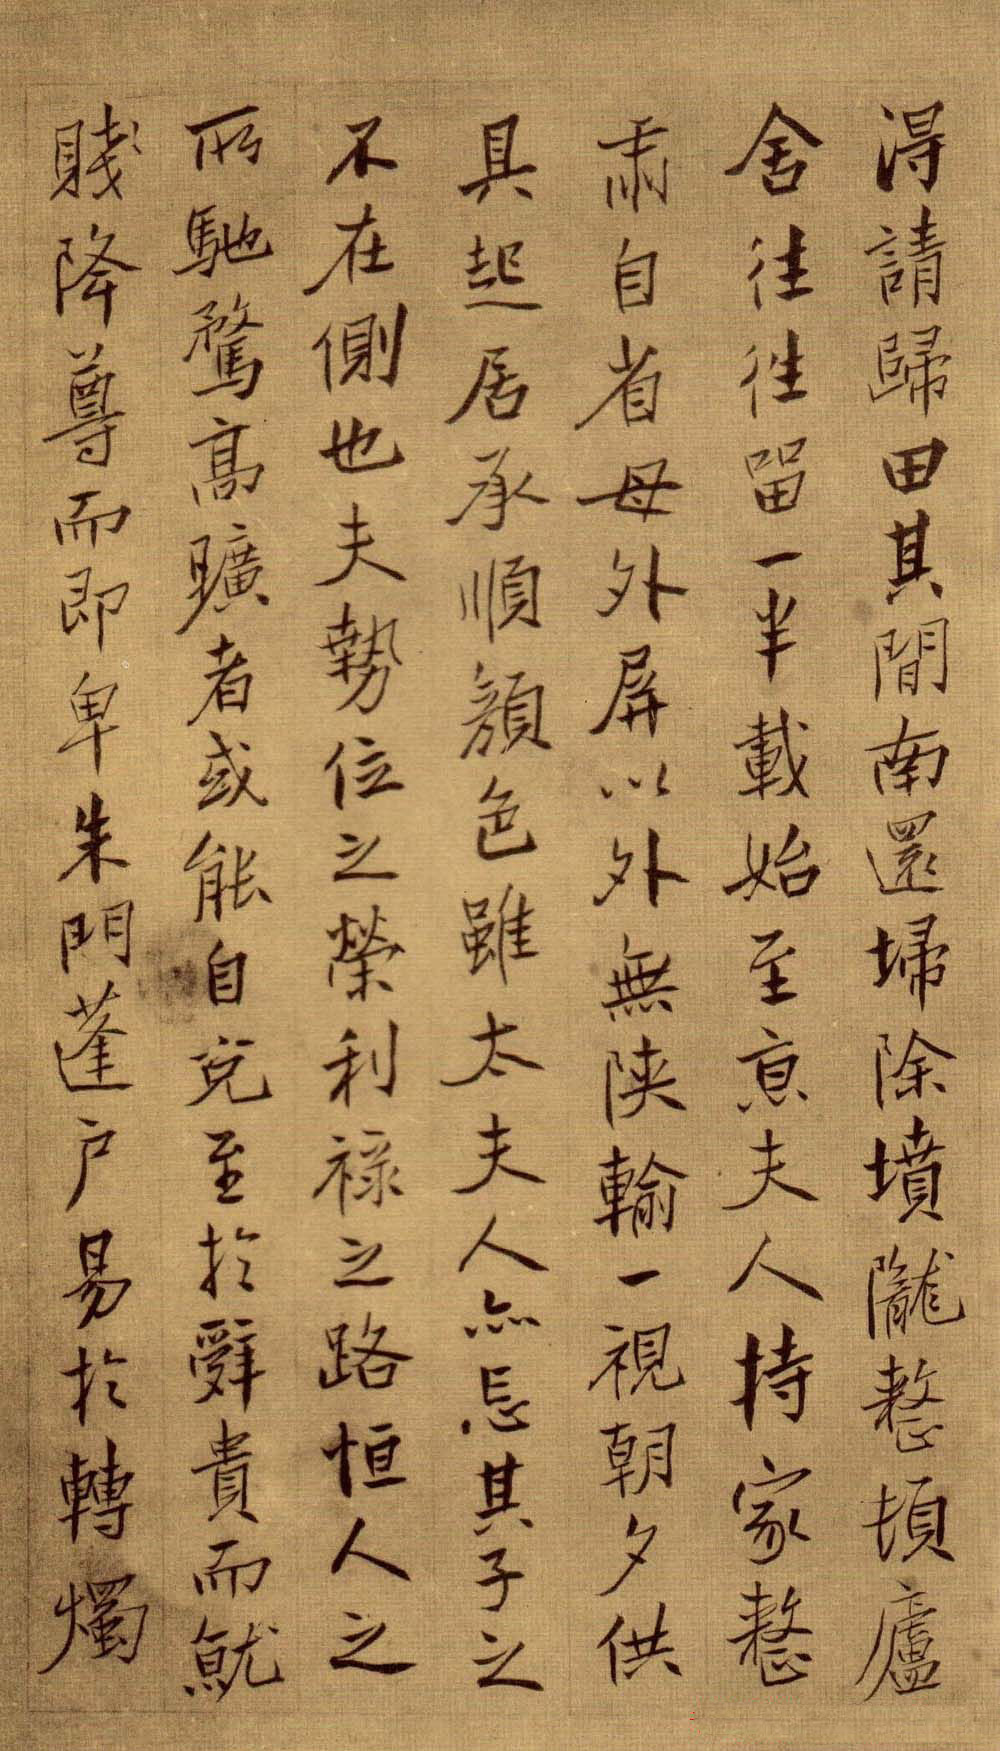 得請歸田其間南還埽除墳隴整頓廬
舍往往留一半載始至京夫人持家整
肅自省母外屏以外無陝輸一視朝夕供
具起居承順顏色雖太夫人亦忘其子之
不在側也夫勢位之榮利祿之路恒人之
所馳騖高曠者或能自免至於辭貴而就
賤降尊而即卑朱門蓬户易於轉燭